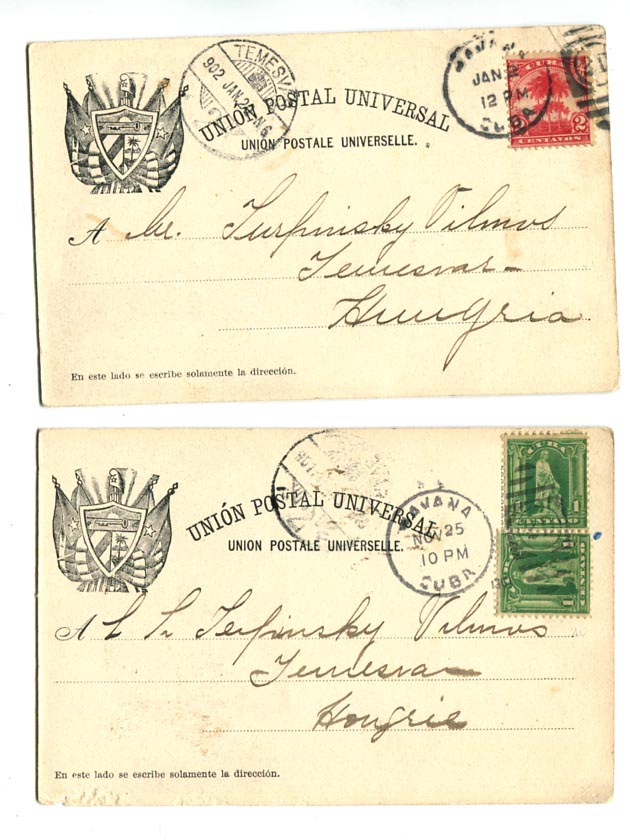 TEMESV
902 JAN 2 N6
HAVANA
JAN
12 P.M.
CUBA
CUBA
2 2
CENTAVOS
UNIÓN POSTAL UNIVERSAL
UNION POSTALE UNIVERSELLE.
A Mr. Turpinsky Vilmos
Temesvar
Hungria
En este lado se escribe solamente la dirección.
CUBA
1 1
CENTAVO
UNIÓN POSTAL UNIVERSAL
UNION POSTALE UNIVERSELLE.
HAVANA
NOV 25
10 PM
CUBA
1
CENTAVO
A Terpinsky Vilmos
Temesvar
Hongrie
En este lado se escribe solamente la dirección.